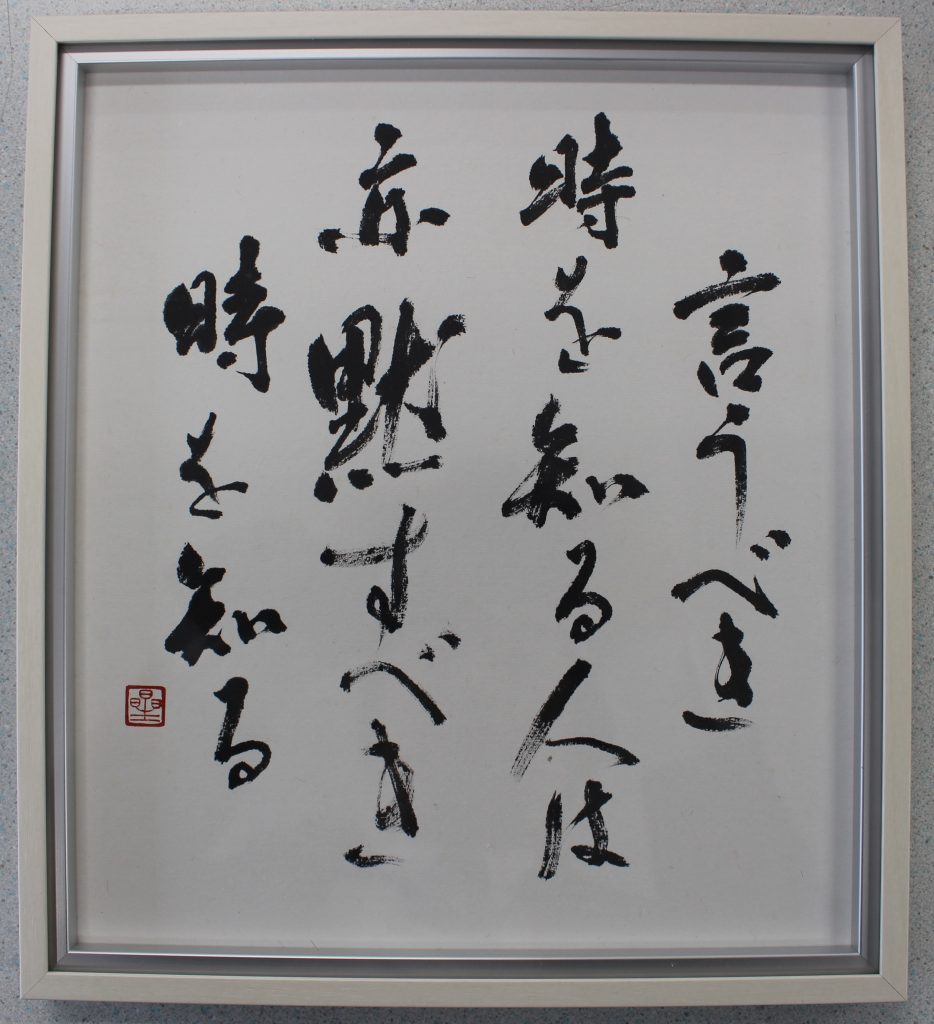 言うべき
時を知る人は
亦黙すべき
時を知る